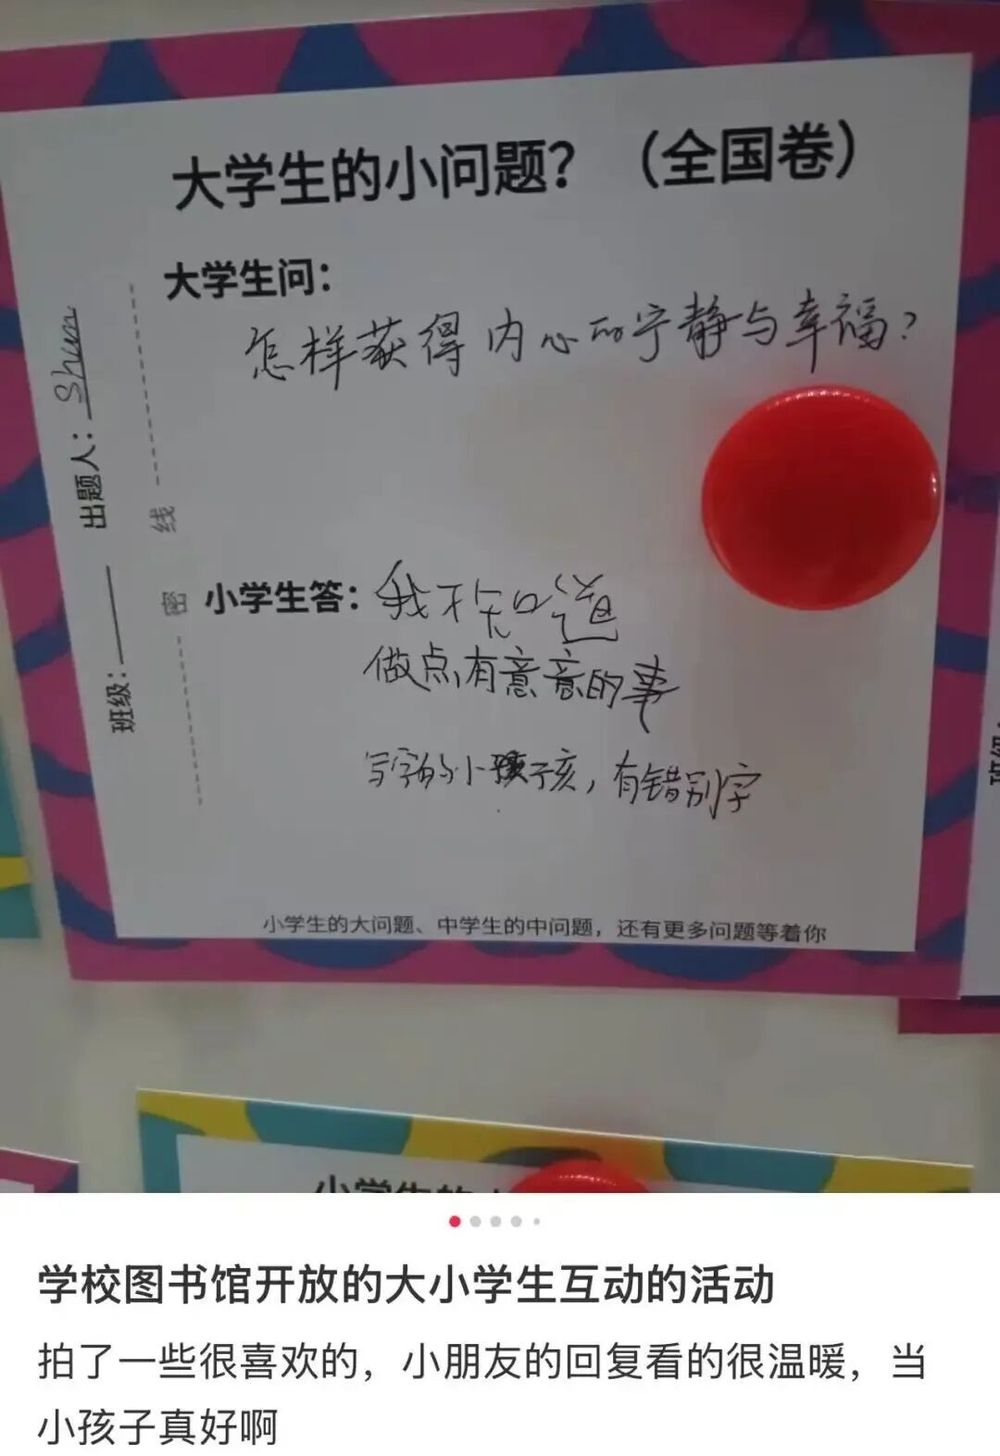 大学生的小问题？（全国卷）
大学生问：
怎样获得内心的宁静与幸福？
出题人：Shun
班级：
密 线
小学生答：我不知道
做点有意意的事
写字的小孩子亥，有错别字
小学生的大问题、中学生的中问题，还有更多问题等着你
小学生的
学校图书馆开放的大小学生互动的活动
拍了一些很喜欢的，小朋友的回复看的很温暖，当
小孩子真好啊